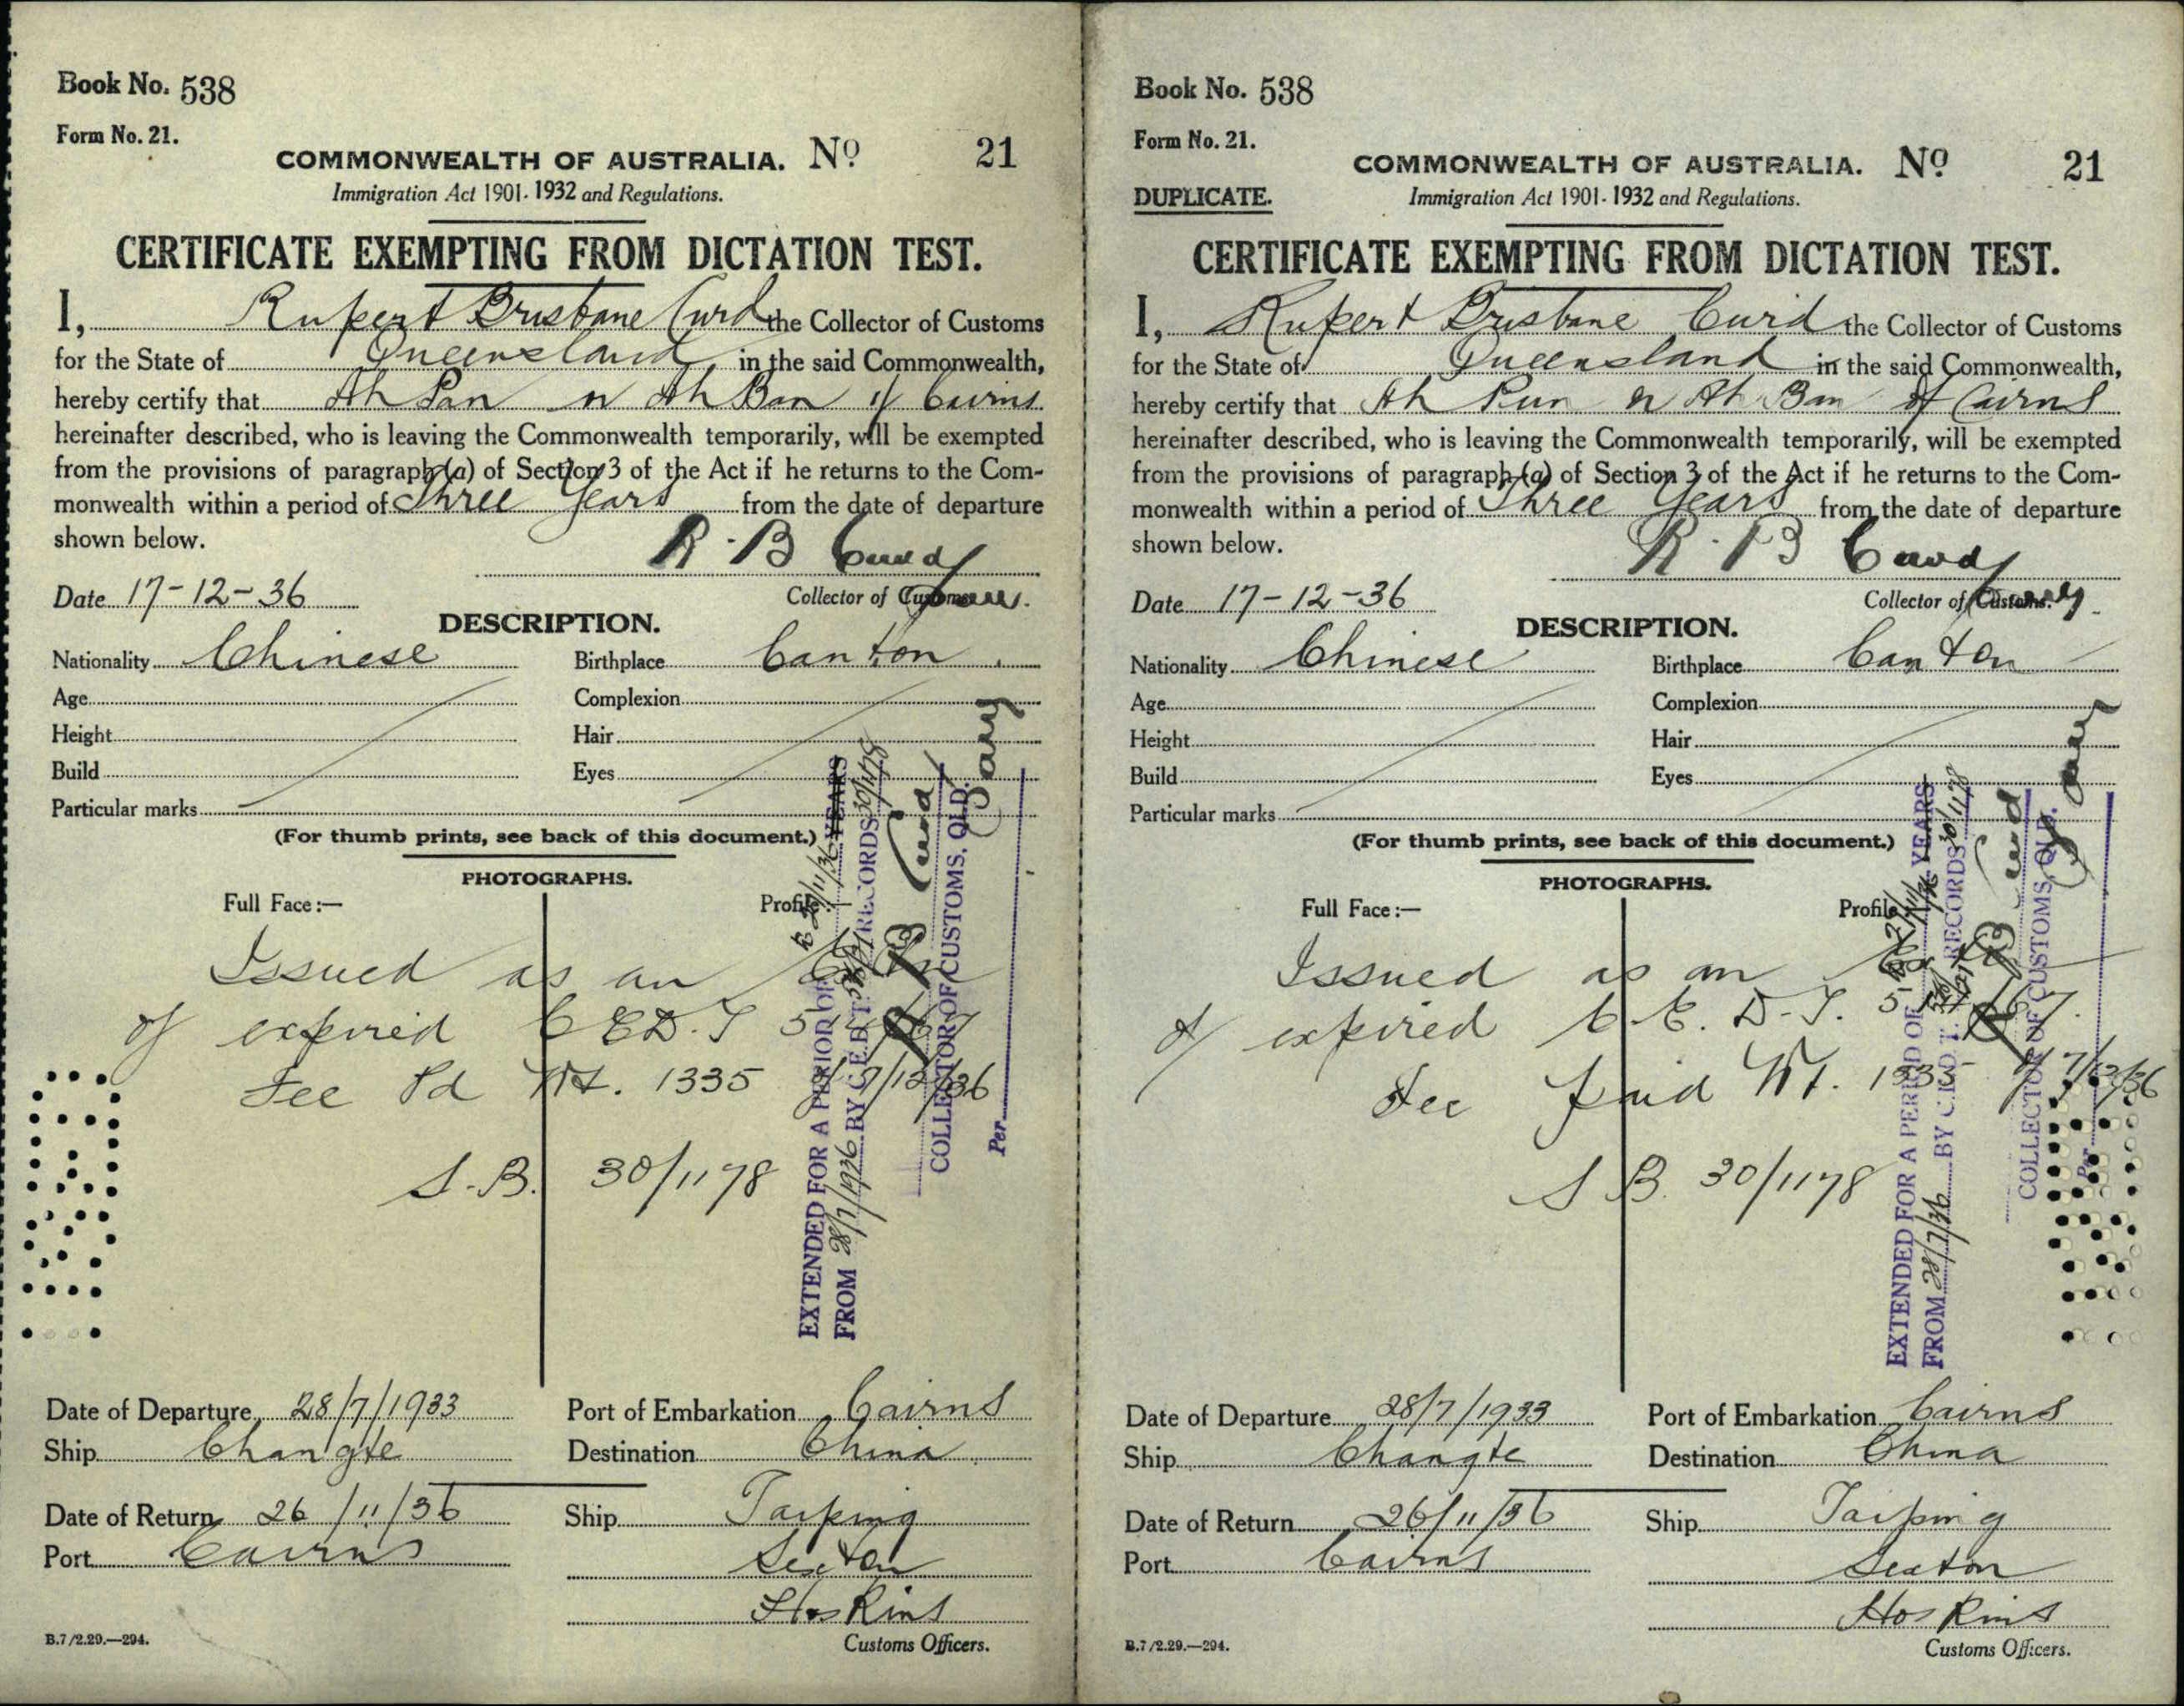 Book No. 538
Form No. 21.
COMMONWEALTH OF AUSTRALIA. No 21
Immigration Act 1901-1932 and Regulations.
CERTIFICATE EXEMPTING FROM DICTATION TEST.
I, Rupert Brisbane Curd the Collector of Customs
for the State of Queensland in the said Commonwealth,
hereby certify that Ah Pan or Ah Ban of Cairns
hereinafter described, who is leaving the Commonwealth temporarily, will be exempted
from the provisions of paragraph (a) of Section 3 of the Act if he returns to the Com-
monwealth within a period of Three Years from the date of departure
shown below.
R. B Curd
Date 17-12-36
Collector of Customs.
DESCRIPTION.
Nationality Chinese Birthplace Canton
Age Complexion
Height Hair
Build Eyes
Particular marks
(For thumb prints, see back of this document.)
PHOTOGRAPHS.
Full Face:— Profile:—
Issued as an
of expired C E D. T
Fee Pd Wt. 1335 7/12/36
S.B. 30/1178
EXTENDED FOR A PERIOD OF YEARS
FROM 28/7/1936 BY C.E.D.T. RECORDS 30/1178
R B Curd
COLLECTOR OF CUSTOMS, QLD.
Per
Date of Departure 28/7/1933 Port of Embarkation Cairns
Ship Changte Destination China
Date of Return 26/11/36 Ship Taiping
Port Cairns Sexton
Hoskins
B.7/2.29.—294. Customs Officers.
Book No. 538
Form No. 21.
COMMONWEALTH OF AUSTRALIA. No 21
DUPLICATE. Immigration Act 1901-1932 and Regulations.
CERTIFICATE EXEMPTING FROM DICTATION TEST.
I, Rupert Brisbane Curd the Collector of Customs
for the State of Queensland in the said Commonwealth,
hereby certify that Ah Pun or Ah Ban of Cairns
hereinafter described, who is leaving the Commonwealth temporarily, will be exempted
from the provisions of paragraph (a) of Section 3 of the Act if he returns to the Com-
monwealth within a period of Three Years from the date of departure
shown below.
R. B Curd
Date 17-12-36
Collector of Customs.
DESCRIPTION.
Nationality Chinese Birthplace Canton
Age Complexion
Height Hair
Build Eyes
Particular marks
(For thumb prints, see back of this document.)
PHOTOGRAPHS.
Full Face:— Profile
Issued as an
of expired C. E. D. T.
Fee Paid Wt. 1335 7/12/36
S B. 30/1178
EXTENDED FOR A PERIOD OF YEARS
FROM 28/7/36 BY C.E.D.T. RECORDS 30/1178
R B Curd
COLLECTOR OF CUSTOMS, QLD.
Per
Date of Departure 28/7/1933 Port of Embarkation Cairns
Ship Changte Destination China
Date of Return 26/11/36 Ship Taiping
Port Cairns Sexton
Hoskins
B.7/2.29.—294. Customs Officers.